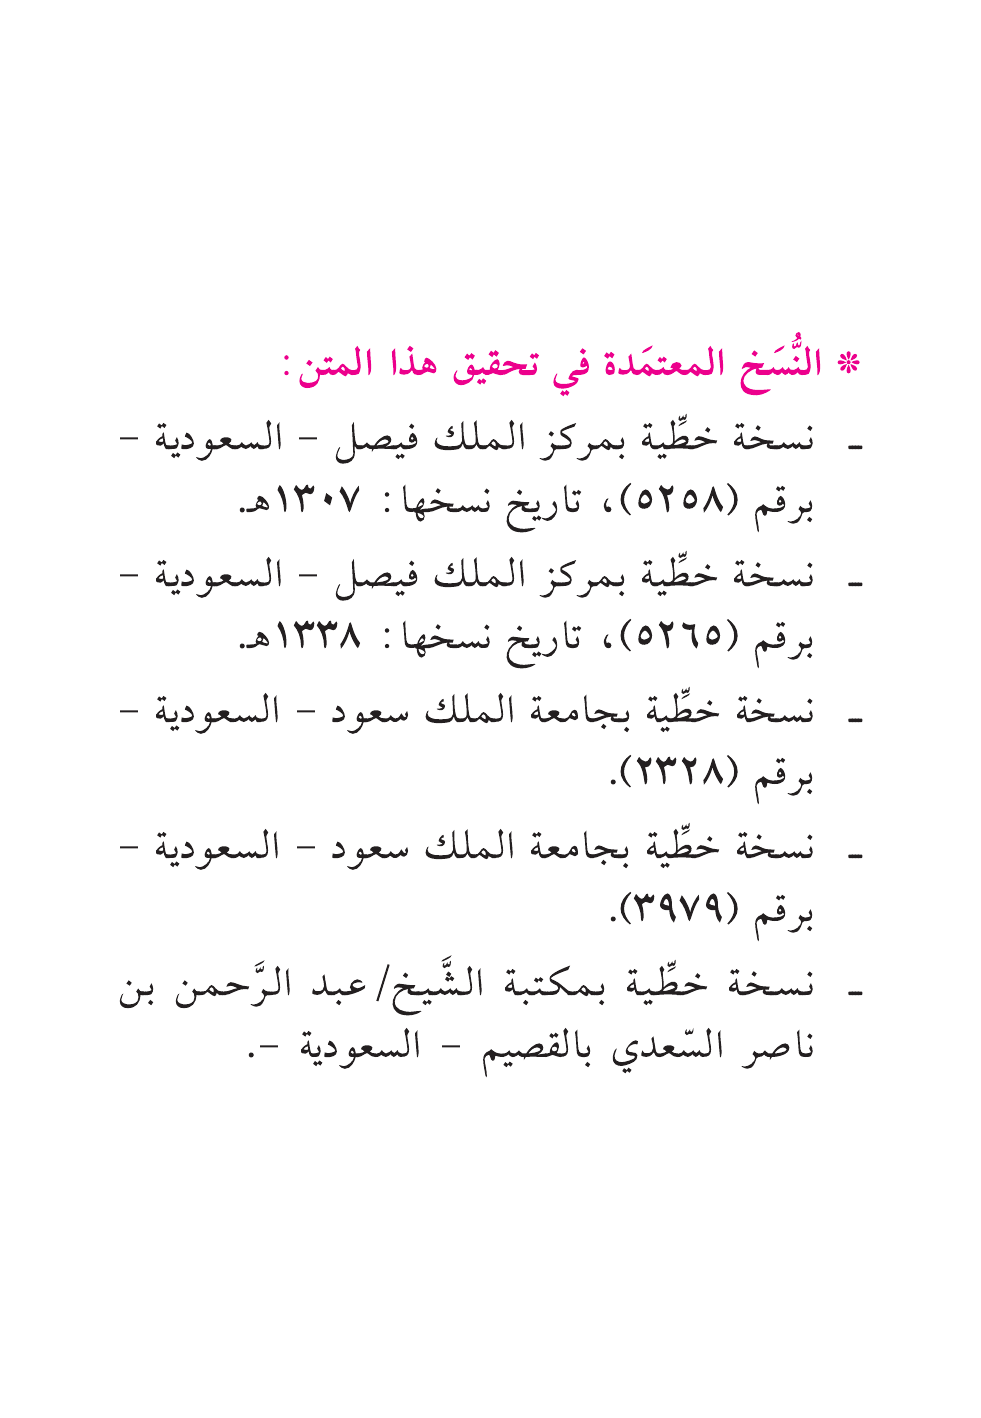 * النُّسَخ المعتمَدة في تحقيق هذا المتن:
ـ نسخة خطِّية بمركز الملك فيصل – السعودية –
برقم (٥٢٥٨)، تاريخ نسخها: ١٣٠٧هـ.
ـ نسخة خطِّية بمركز الملك فيصل – السعودية –
برقم (٥٢٦٥)، تاريخ نسخها: ١٣٣٨هـ.
ـ نسخة خطِّية بجامعة الملك سعود – السعودية –
برقم (٢٣٢٨).
ـ نسخة خطِّية بجامعة الملك سعود – السعودية –
برقم (٣٩٧٩).
ـ نسخة خطِّية بمكتبة الشَّيخ/ عبد الرَّحمن بن
ناصر السّعدي بالقصيم – السعودية –.